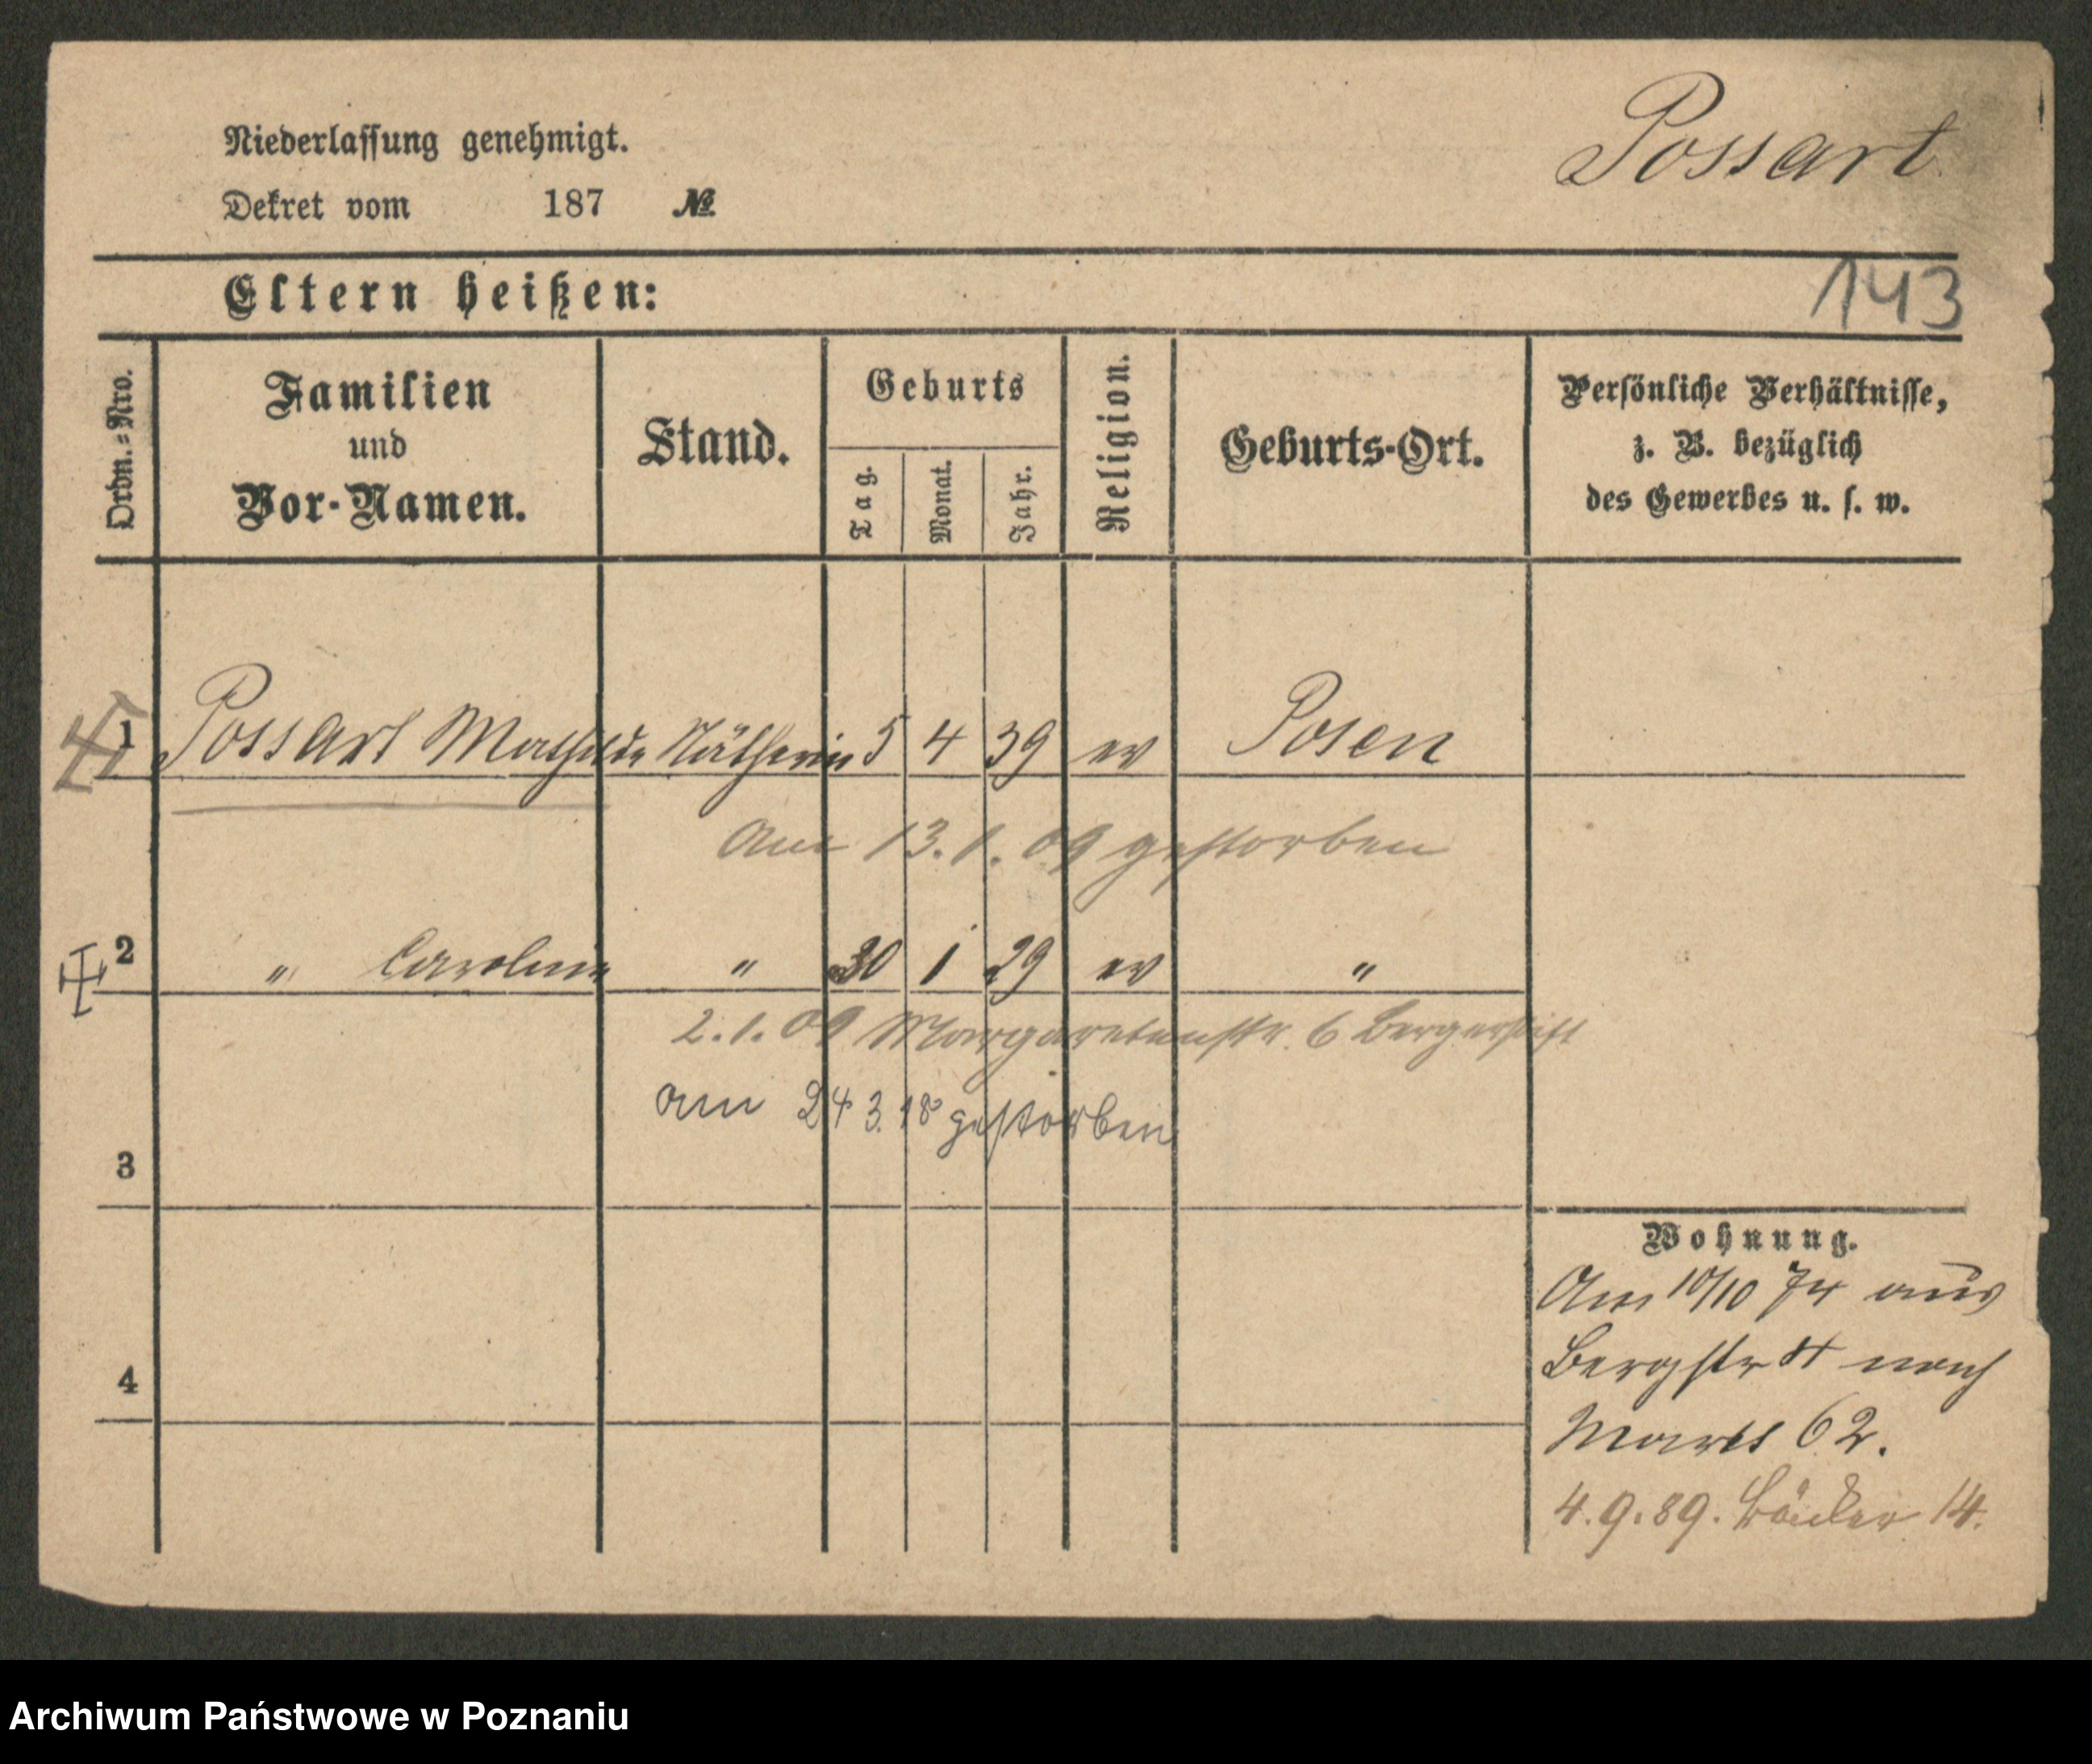 Possart
Niederlassung genehmigt.
Dekret vom 187 №
Eltern heißen:
143
Ordn.=Nro.
Familien
und
Vor-Namen.
Stand.
Geburts
Tag.
Monat.
Jahr.
Religion.
Geburts-Ort.
Persönliche Verhältnisse,
z. B. bezüglich
des Gewerbes u. s. w.
1 Possart Mathilde Nätherin 5 4 39 ev Posen
Am 13.1.09 gestorben
2 " Caroline " 30 1 29 ev "
2.1.09 Margaretenstr. 6 Bergerstift
am 24 3. 18 gestorben
3
4
Wohnung.
Am 10/10 74 aus
Bergstr 4 nach
Markt 62.
4.9.89. Bäcker 14.
Archiwum Państwowe w Poznaniu